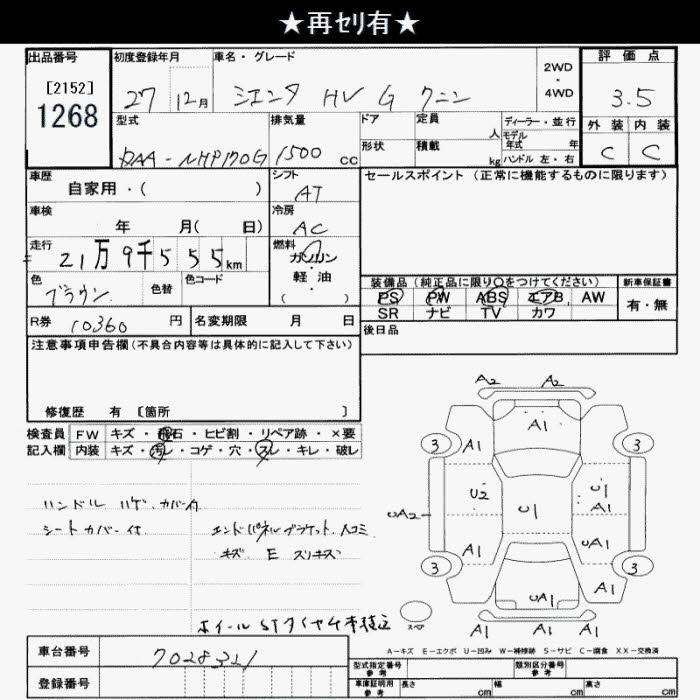 ★再ｾﾘ有★
出品番号 初度登録年月 車名・グレード 2WD・4WD 評価点
[2152] 1268 27 12月 シエンタ HV G クエロ 3.5
外装 内装
C C
型式 排気量 ドア 定員 人 ディーラー・並行
DAA-NHP170G 1500cc 形状 積載 kg モデル年式 年
ハンドル 左・右
車歴 シフト セールスポイント (正常に機能するものに限ります)
自家用・( ) AT
車検 冷房
年 月( 日) AC
走行 燃料
21万9千555km ガソリン
軽・油
( )
色 色替 色コード
ブラウン
装備品 (純正品に限り○をつけてください) 新車保証書
PS PW ABS エアB AW 有・無
SR ナビ TV カワ
R券 10360 円 名変期限 月 日
後日品
注意事項申告欄(不具合内容等は具体的に記入して下さい)
修復歴 有 [箇所 ]
検査員 FW キズ・飛石・ヒビ割・リペア跡・×要
記入欄 内装 キズ・汚レ・コゲ・穴・スレ・キレ・破レ
A2 A2
A1
3 A1 A1 3
U2 U1 U1
A1
UA2
A1 UA1
3 UA1 A1 3
スペア A1 A1 A1
ハンドル ハゲ・カバー付
シートカバー付 エンドパネルブラケット、
キズ E スリキズ
ホイール STタイヤ4本積込
A－キズ E－エクボ U－凹み W－補修跡 S－サビ C－腐食 XX－交換済
車台番号 7028321
登録番号
型式指定番号 参考 類別区分番号 参考
車庫証明用 参考 長さ cm 幅 cm 高さ cm